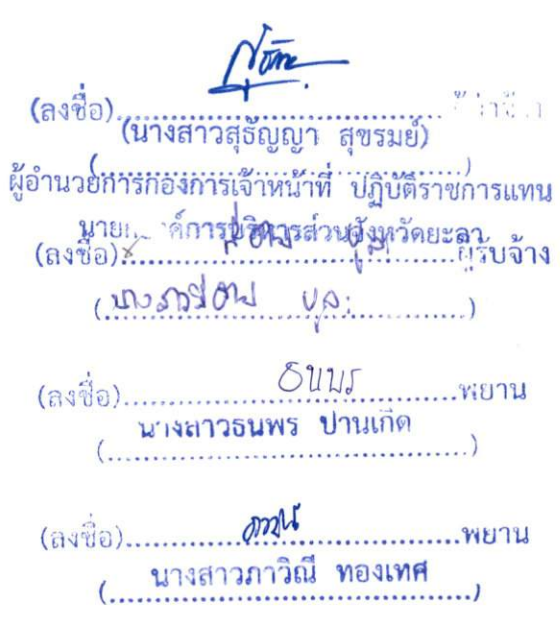 (ลงชื่อ)
(นางสาวสุธัญญา สุขรมย์)
(..............................)
ผู้อำนวยการกองการเจ้าหน้าที่ ปฏิบัติราชการแทน
นายกองค์การบริหารส่วนจังหวัดยะลา
(ลงชื่อ)..............................ผู้รับจ้าง
(นางสาว..............................)
(ลงชื่อ)..............ธนพร..............พยาน
นางสาวธนพร ปานเกิด
(..............................)
(ลงชื่อ)..............................พยาน
นางสาวภาวิณี ทองเทศ
(..............................)